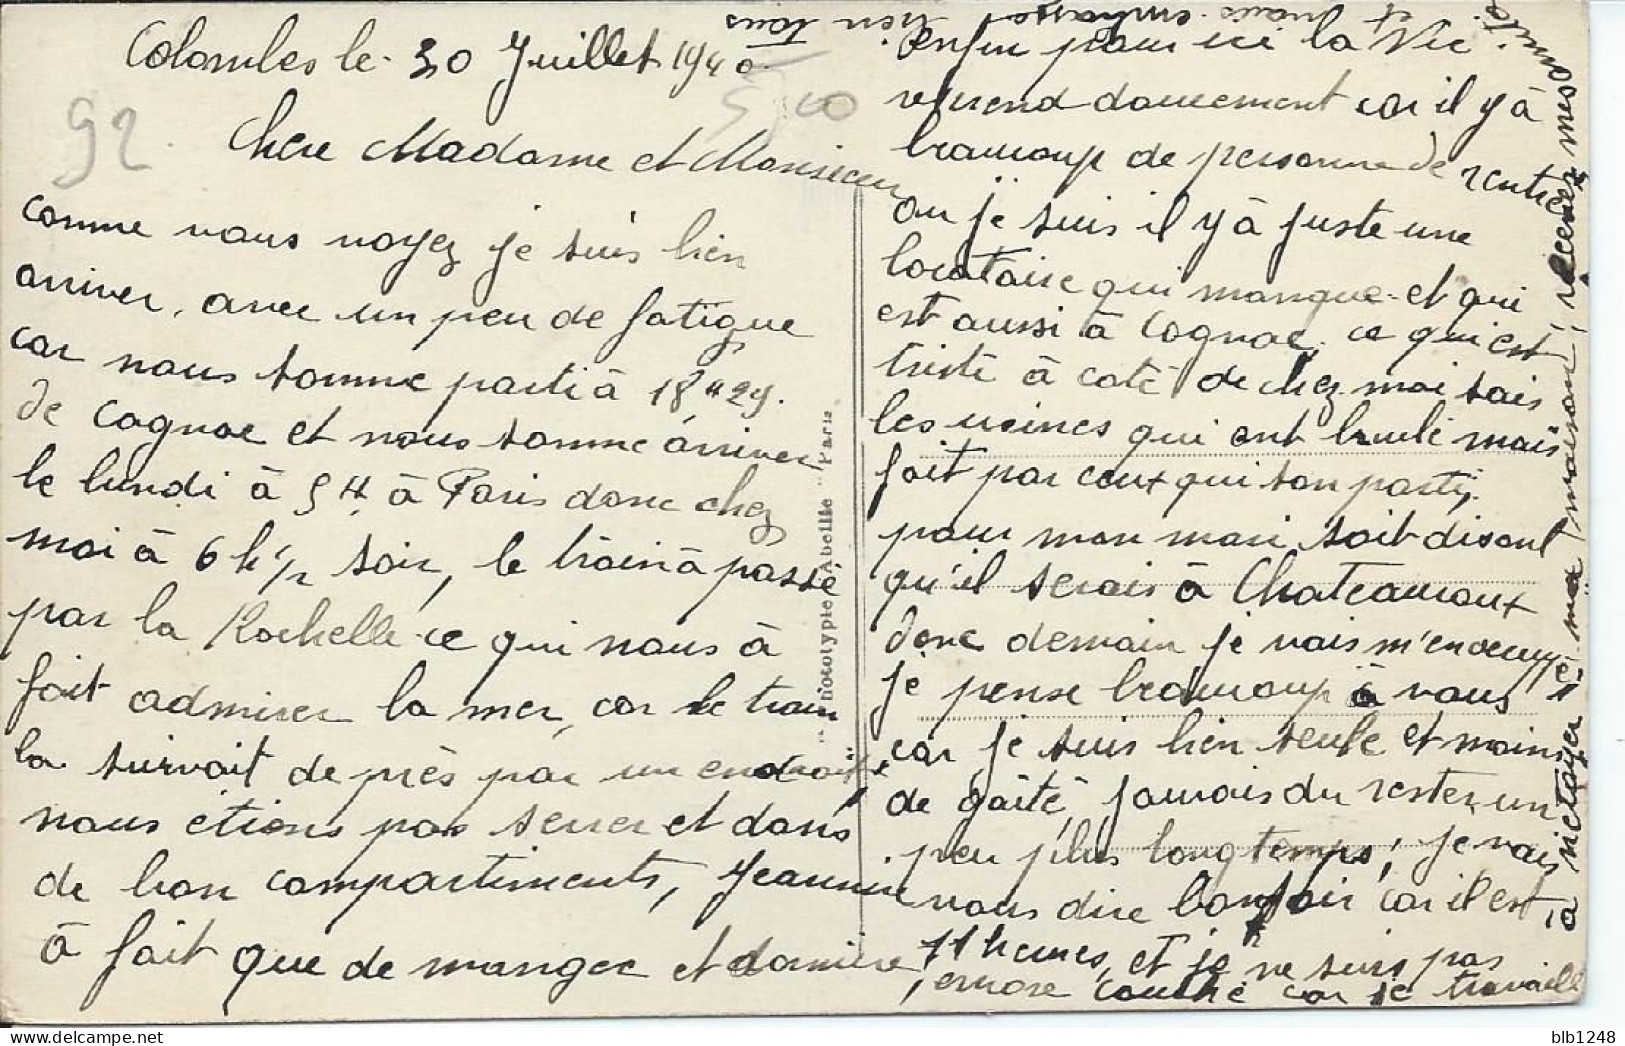 Colombes le 30 Juillet 1940
92
5/00
Chere Madame et Monsieur
comme vous voyez je suis bien
arriver, avec un peu de fatigue
car nous somme parti à 18 H 29.
de Cognac et nous somme arriver
le lundi à 5 H à Paris donc chez
moi à 6 h 1/2 soir, le train à passé
par la Rochelle ce qui nous à
fait admirer la mer, car le train
la suivait de près par un endroit,
nous étions pas serrer et dans
de bon compartiments, Jeannine
à fait que de manger et dormire,
enfin pour ici la Vie
reprend doucement car il y à
beaucoup de personne de rentrée
ou je suis il y à juste une
locataire qui manque et qui
est aussi à Cognac, ce qui est
triste à coté de chez moi sais
les usines qui ont brulé mais
fait par ceux qui son party.
pour mon mari soit disant
qu'il serais à Chateauroux
donc demain je vais m'en occuppé
je pense beaucoup à vous
car je suis bien seule et moins
de gaité, jamais du rester un
peu plus longtemps, je vais
vous dire bonsoir car il est
11 heures, et je ne suis pas
encore couché car je travaille
à nictoyer ma maison, recevez mes amitiés
et mais embrasser bien tous
"Phototypie Abeille" Paris
blb1248